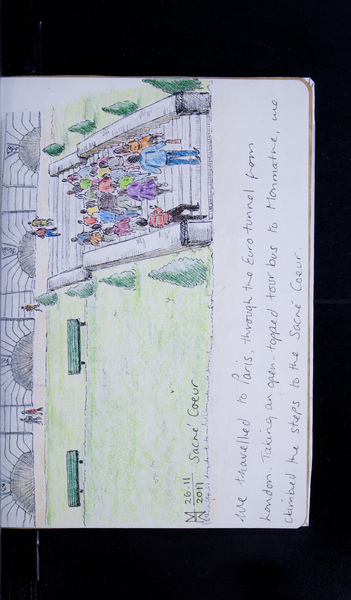 26.11
2011
Sacré Coeur
We travelled to Paris, through the Euro tunnel from
London. Taking an open-topped tour bus to Monmatre, we
climbed the steps to the Sacré Coeur.